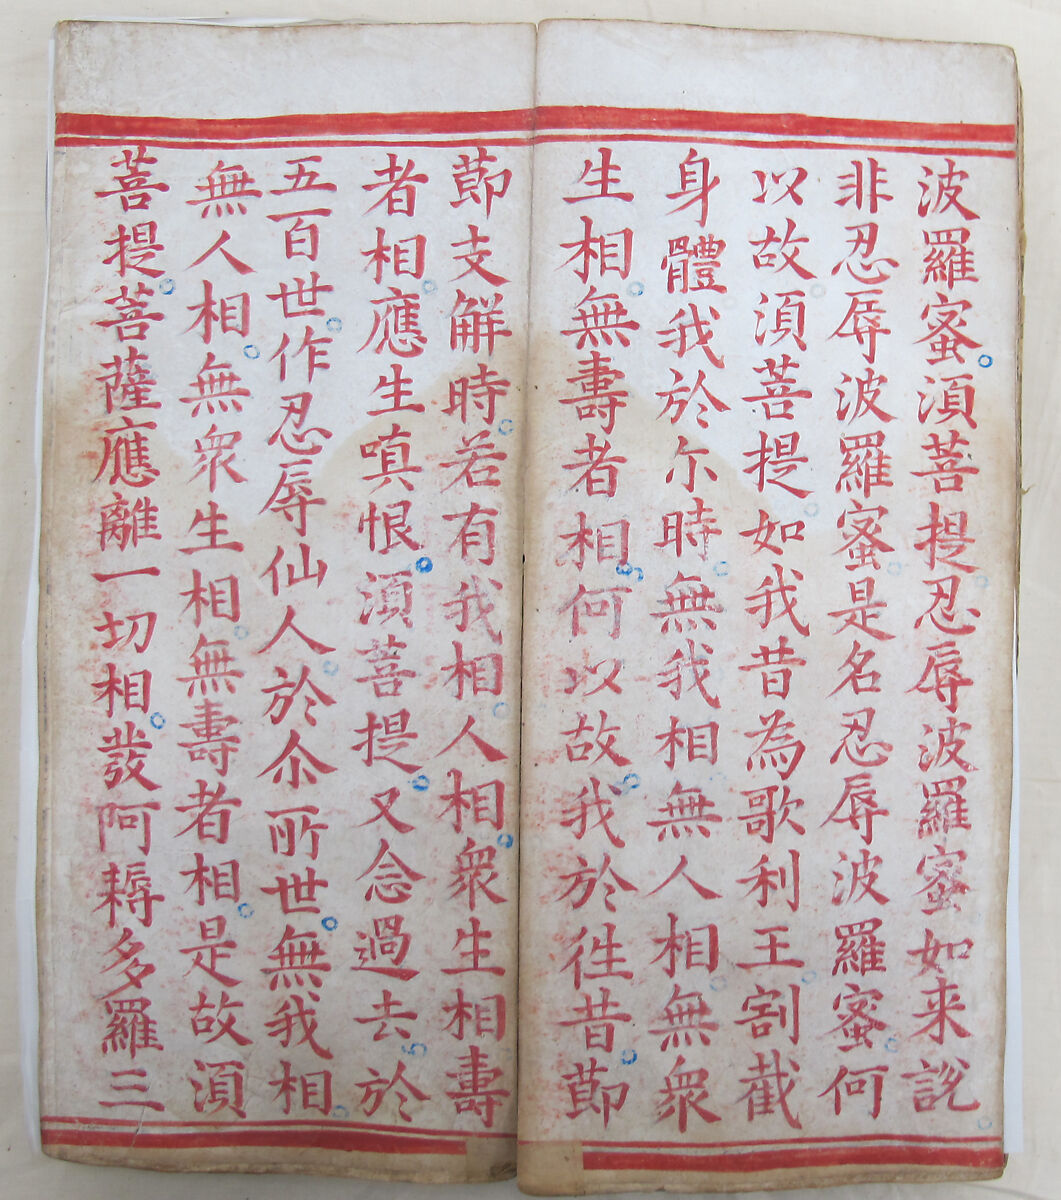 波羅蜜須菩提忍辱波羅蜜如来說
非忍辱波羅蜜是名忍辱波羅蜜何
以故須菩提如我昔為歌利王割截
身體我於尒時無我相無人相無衆
生相無壽者相何以故我於徃昔節
節支解時若有我相人相衆生相壽
者相應生嗔恨須菩提又念過去於
五百世作忍辱仙人於尒所世無我相
無人相無衆生相無壽者相是故須
菩提菩薩應離一切相發阿耨多羅三